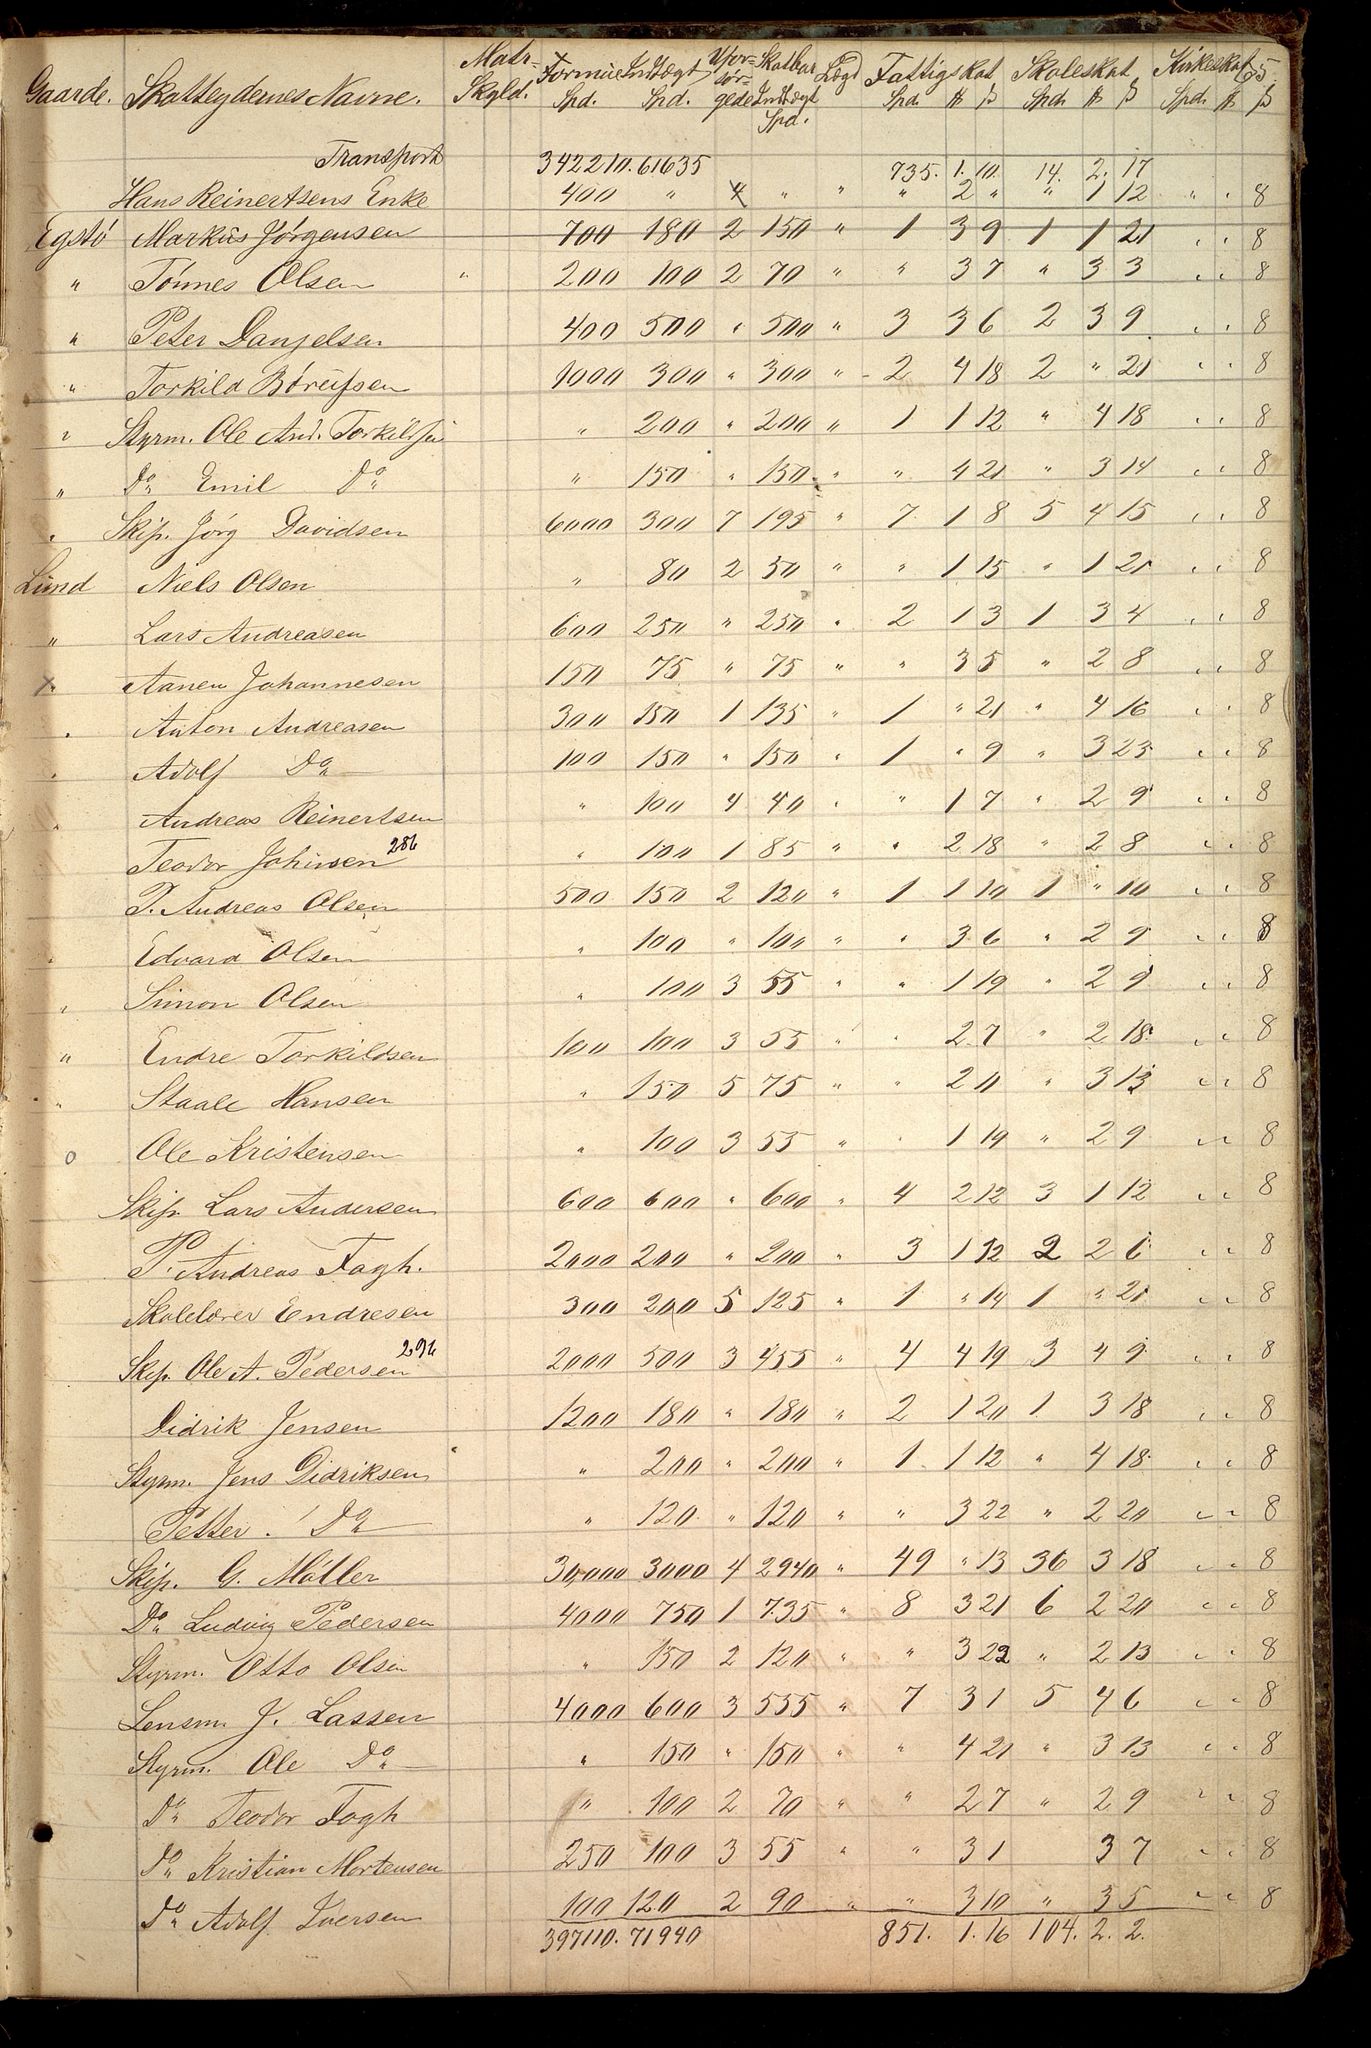 Gaarde. Skatteydernes Navne. Matr- Skyld. Formue Spd. Indtægt Spd. Ufor- sør- gede Skatbar Indtægt Spd. Lægd Fattigskat Spd. # ß Skoleskat Spd. # ß Kirkeskat Spd. # ß
Transport 342210. 61635 735. 1. 10. 14. 2. 17
Hans Reinertsens Enke 400 " 4 " " " 2 " " 1 12 " " 8
Egstö Markus Jørgensen 700 180 2 150 " 1 3 9 1 1 21 " " 8
" Tönnes Olsen " 200 100 2 70 " " 3 7 " 3 3 " " 8
" Peter Danjelsen 400 500 " 500 " 3 3 6 2 3 9 " " 8
" Torkild Börufsen 1000 300 " 300 " - 2 4 18 2 " 21 " " 8
" Styrm. Ole And. Torkildsen " 200 " 200 " 1 1 12 " 4 18 " " 8
" Do Emil Do " 150 " 150 " " 4 21 " 3 14 " " 8
" Skip. Jörg Davidsen 6000 300 7 195 " 7 1 8 5 4 15 " " 8
Lund Niels Olsen " 80 2 50 " " 1 15 " 1 21 " " 8
" Lars Andreasen 600 250 " 250 " 2 1 3 1 3 4 " " 8
X " Aanen Johannesen 150 75 " 75 " " 3 5 " 2 8 " " 8
" Anton Andreasen 300 150 1 135 " 1 " 21 " 4 16 " " 8
" Adolf Do 100 150 " 150 " 1 " 9 " 3 23 " " 8
" Andreas Reinertsen " 100 4 40 " " 1 7 " 2 9 " " 8
Teodor Johnsen 286 " 100 1 85 " " 2 18 " 2 8 " " 8
P. Andreas Olsen 500 150 2 120 " 1 1 10 1 " 10 " " 8
" Edvard Olsen " 100 " 100 " " 3 6 " 2 9 " " 8
" Simon Olsen " 100 3 55 " " 1 19 " 2 9 " " 8
" Endre Torkildsen 100 100 3 55 " " 2 7 " 2 18 " " 8
" Staale Hansen " 150 5 75 " " 2 11 " 3 13 " " 8
o Ole Kristensen " 100 3 55 " " 1 19 " 2 9 " " 8
Skip. Lars Andersen 600 600 " 600 " 4 2 12 3 1 12 " " 8
P. Andreas Fagh. 2000 200 " 200 " 3 1 12 2 2 6 " " 8
Skolelærer Endresen 300 200 5 125 " 1 " 14 1 " 21 " " 8
Skip. Ole A. Pedersen 296 2000 500 3 455 " 4 4 19 3 4 9 " " 8
Didrik Jensen 1200 180 " 180 " 2 1 20 1 3 18 " " 8
Styrm. Jens Didriksen " " 200 " 200 " 1 1 12 " 4 18 " " 8
Petter. Do " 120 " 120 " " 3 22 " 2 20 " " 8
Skip. G. Möller 30,000 3000 4 2940 " 49 " 13 36 3 18 " " 8
Do Ludvig Pedersen 4000 750 1 735 " 8 3 21 6 2 20 " " 8
Styrm. Otto Olsen " 150 2 120 " " 3 22 " 2 13 " " 8
Lensm. J. Lassen 4000 600 3 555 " 7 3 1 5 4 6 " " 8
Styrm. Ole Do " 150 " 150 " " 4 21 " 3 13 " " 8
Do Teodor Fogh " 100 2 70 " " 2 7 " 2 9 " " 8
Do Kristian Mortensen 250 100 3 55 " " 3 1 3 7 " " 8
Do Adolf Iversen 100 120 2 90 " " 3 10 " 3 5 " " 8
397110. 71940 851. 1. 16 104. 2. 2.